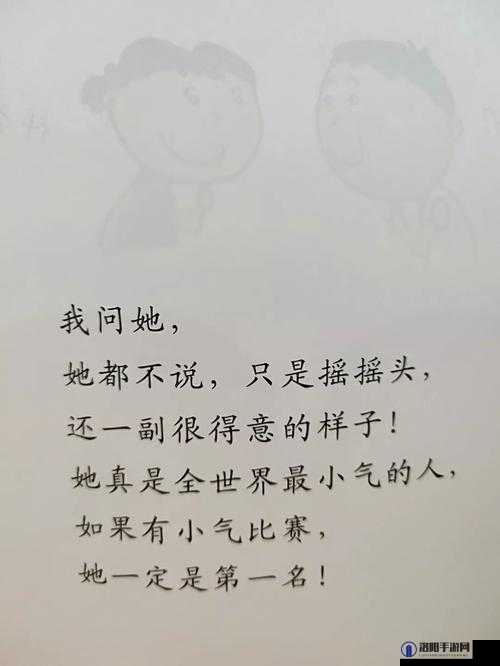 我问她，
她都不说，只是摇摇头，
还一副很得意的样子！
她真是全世界最小气的人，
如果有小气比赛，
她一定是第一名！
洛阳手游网